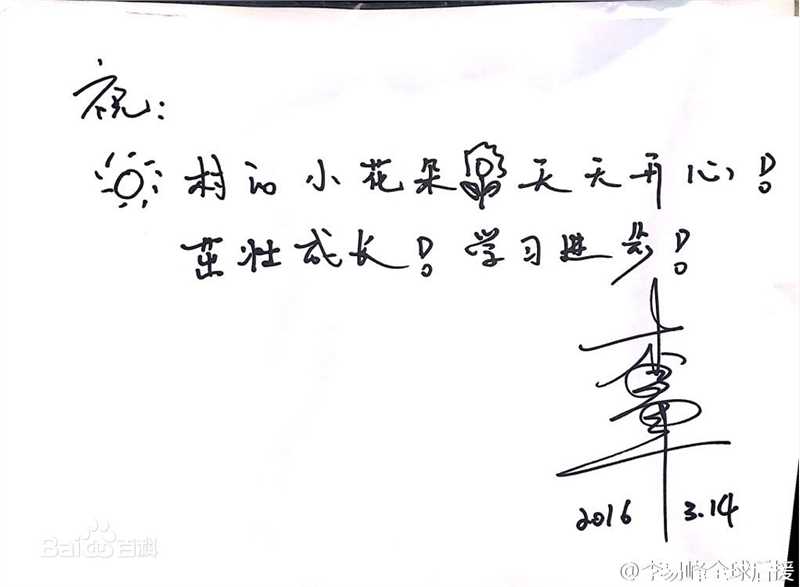 祝:
村的小花朵天天开心!
茁壮成长!学习进步!
2016 3.14
Bai百科
@李易峰全球后援